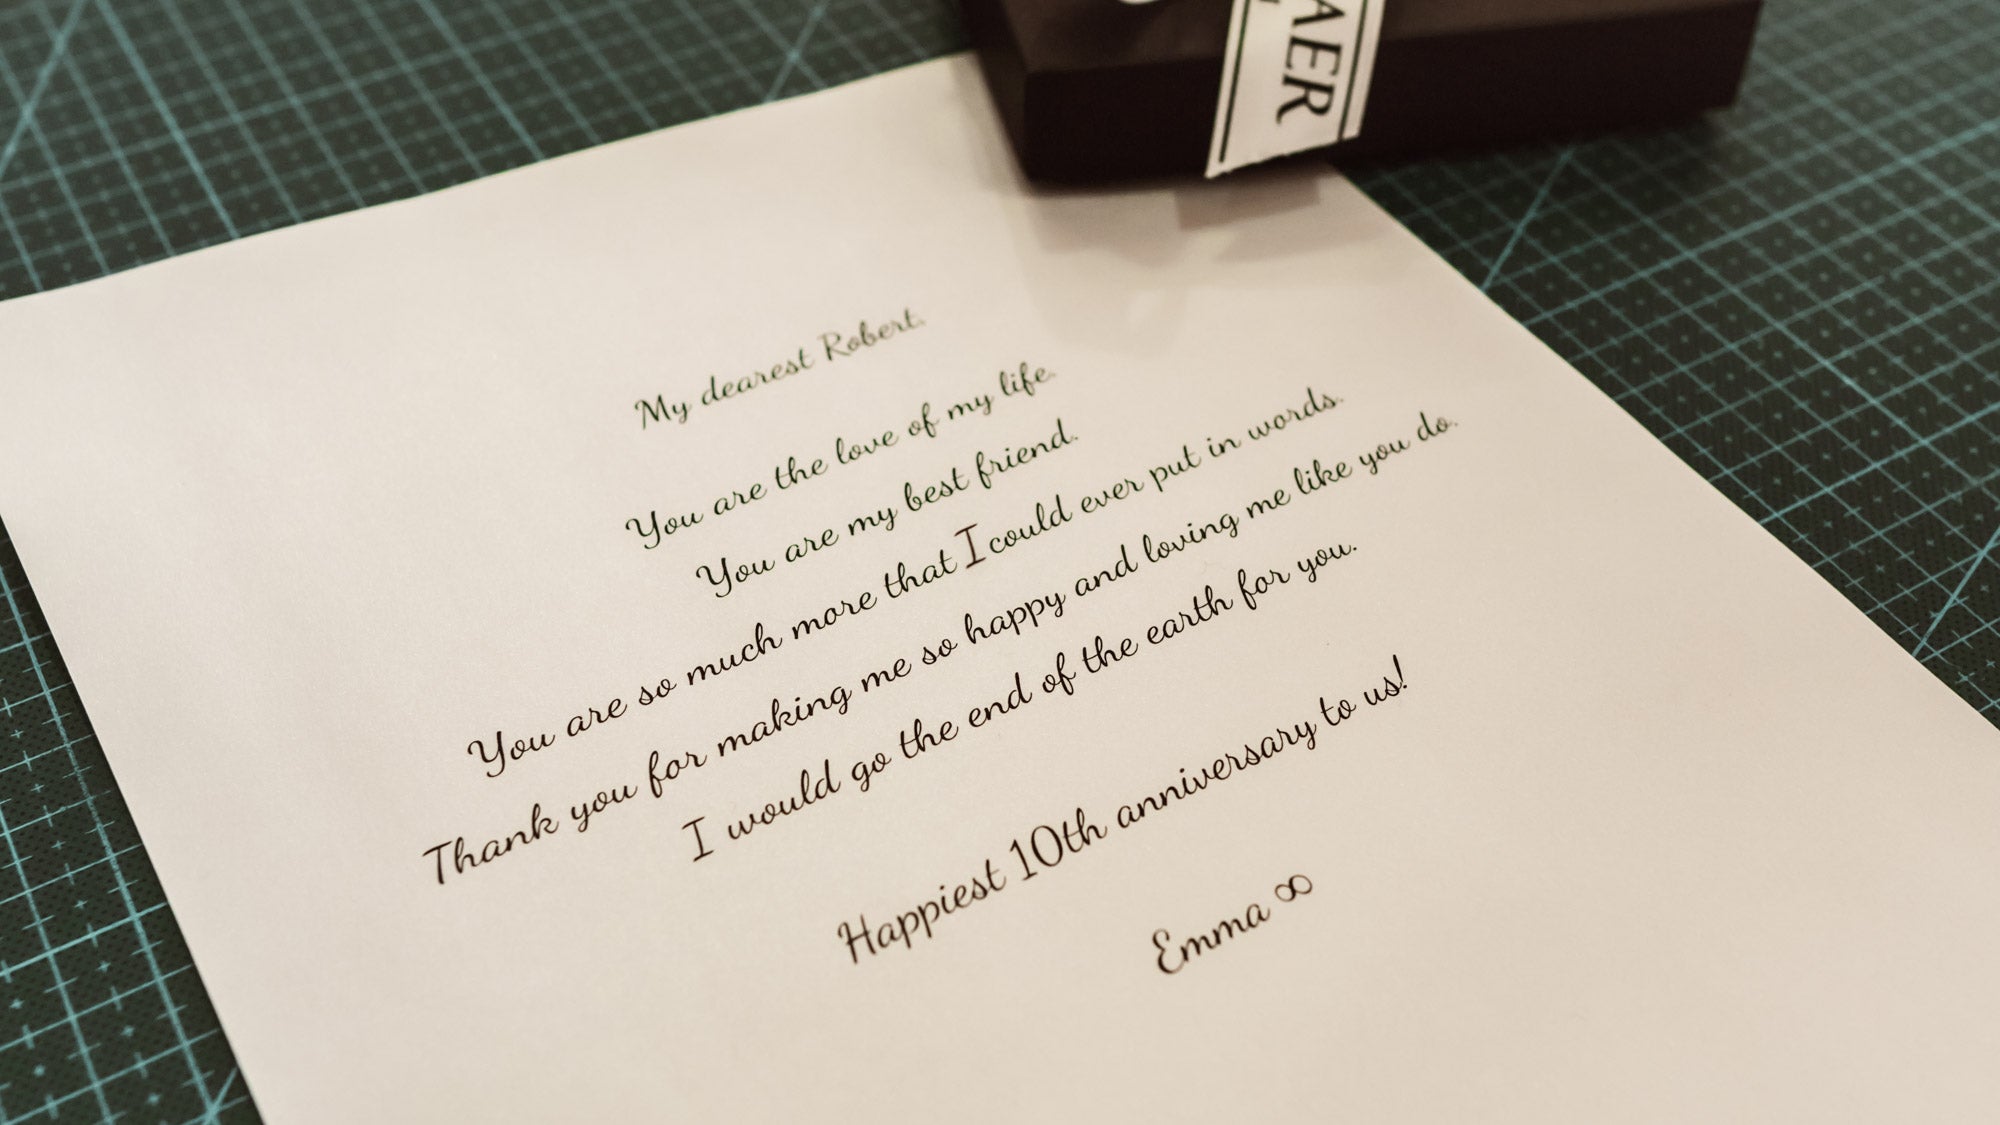 AER
My dearest Robert,
You are the love of my life.
You are my best friend.
You are so much more that I could ever put in words.
Thank you for making me so happy and loving me like you do.
I would go the end of the earth for you.
Happiest 10th anniversary to us!
Emma ∞